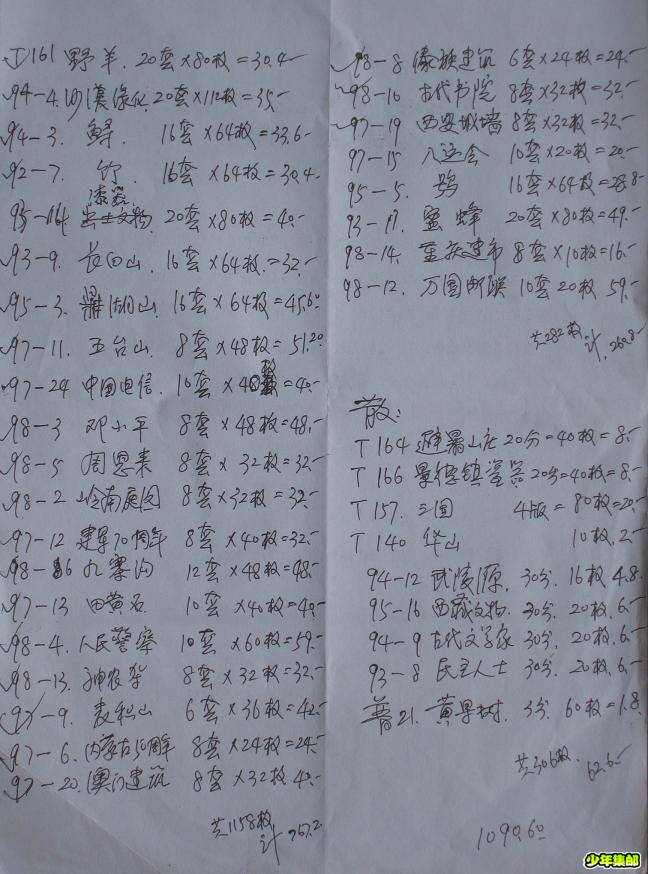 T161 野羊. 20套×80枚=30.4
94-4. 沙漠绿化 20套×112枚=35.-
94-3. 鲟. 16套×64枚=33.6-
92-7. 竹. 16套×64枚=30.4-
漆器
20套×80枚=40.-
93-9. 长白山. 16套×64枚=32.-
95-3. 鼎湖山. 16套×64枚=45.60
97-11. 五台山. 8套×48枚=51.20
97-24 中国电信. 10套×40枚=40.-
98-3 邓小平 8套×48枚=48.-
98-5 周恩来 8套×32枚=32.-
98-2 岭南庭园 8套×32枚=32.-
97-12 建军70周年 8套×40枚=32.-
98-6 九寨沟 12套×48枚=48.-
97-13 田黄石 10套×40枚=40.-
98-4. 人民警察 10套×60枚=59.-
98-13. 神农架 8套×32枚=32.-
97-9. 麦积山 6套×36枚=42.-
97-6. 内蒙古50周年 8套×24枚=24.-
97-20. 澳门建筑 8套×32枚 42.-
共1158枚
计 767.2
98-8 傣族建筑 6套×24枚=24.-
98-10 古代书院 8套×32枚=32.-
97-19 西安城墙 8套×32枚=32.-
97-15 八运会 10套×20枚=20.-
95-5. 16套×64枚=28.8-
93-11 蜜蜂 20套×80枚=49.-
98-14. 重庆建市 8套×10枚=16.-
98-12. 万国邮联 10套20枚 59.-
共282枚 计 260.8-
散:
T164 避暑山庄 20分=40枚=8.-
T166 景德镇瓷器 20分=40枚=8.-
T157. 三国 4版=80枚=20.-
T140 华山 10枚. 2.-
94-12 武陵源. 30分. 16枚 4.8.
95-16 西藏文物. 30分. 20枚. 6.-
94-9 古代文学家 30分. 20枚. 6.-
93-8 民主人士 30分. 20枚. 6.-
普21. 黄果树. 3分. 60枚=1.8.
共306枚.
62.6.-
1090.60
少年集邮